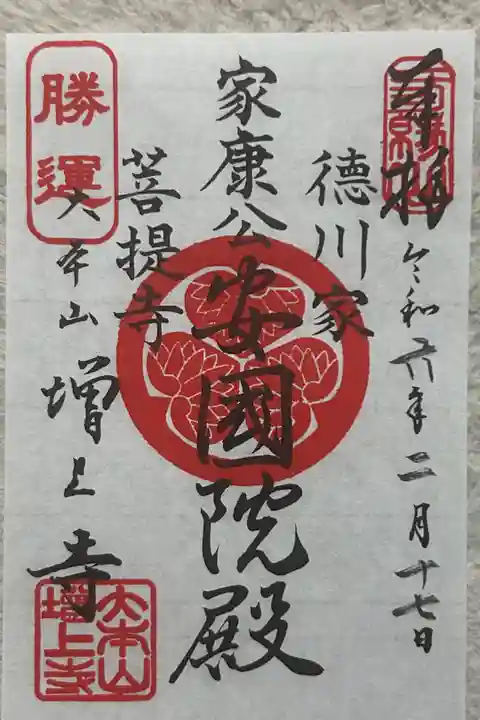 奉拝
令和六年二月十七日
徳川家
家康公安國院殿
菩提寺
勝運
大本山増上寺
大本山
増上寺